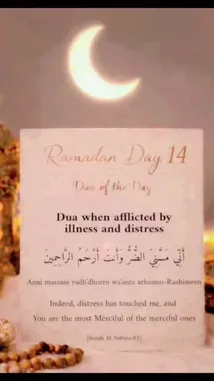 Ramadan Day 14
Dua of the Day
Dua when afflicted by
illness and distress
أَنِّي مَسَّنِيَ الضُّرُّ وَأَنتَ أَرْحَمُ الرَّاحِمِينَ
Anni massani yadh'dhurru wa'anta arhamur-Raahimeen
Indeed, distress has touched me, and
You are the most Merciful of the merciful ones
[Surah Al Anbiya:83]